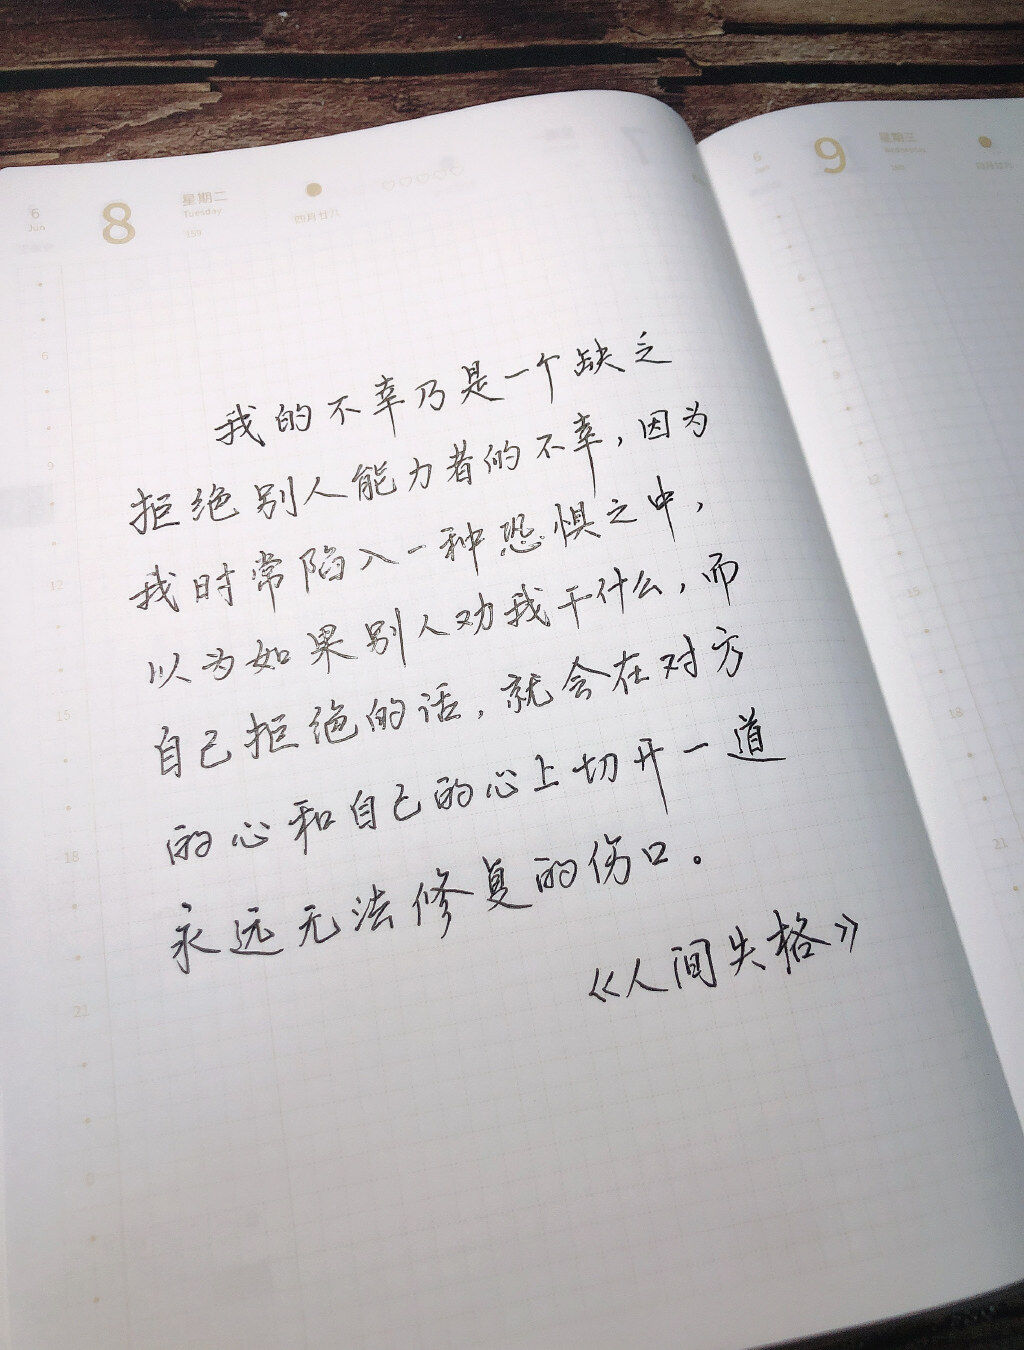 6
Jun
8
星期二
Tuesday
159
四月廿八
9
星期三
Wednesday
160
四月廿九
6
9
12
15
18
21
0
6
9
12
15
18
21
我的不幸乃是一个缺乏
拒绝别人能力者的不幸，因为
我时常陷入一种恐惧之中，
以为如果别人劝我干什么，而
自己拒绝的话，就会在对方
的心和自己的心上切开一道
永远无法修复的伤口。
《人间失格》